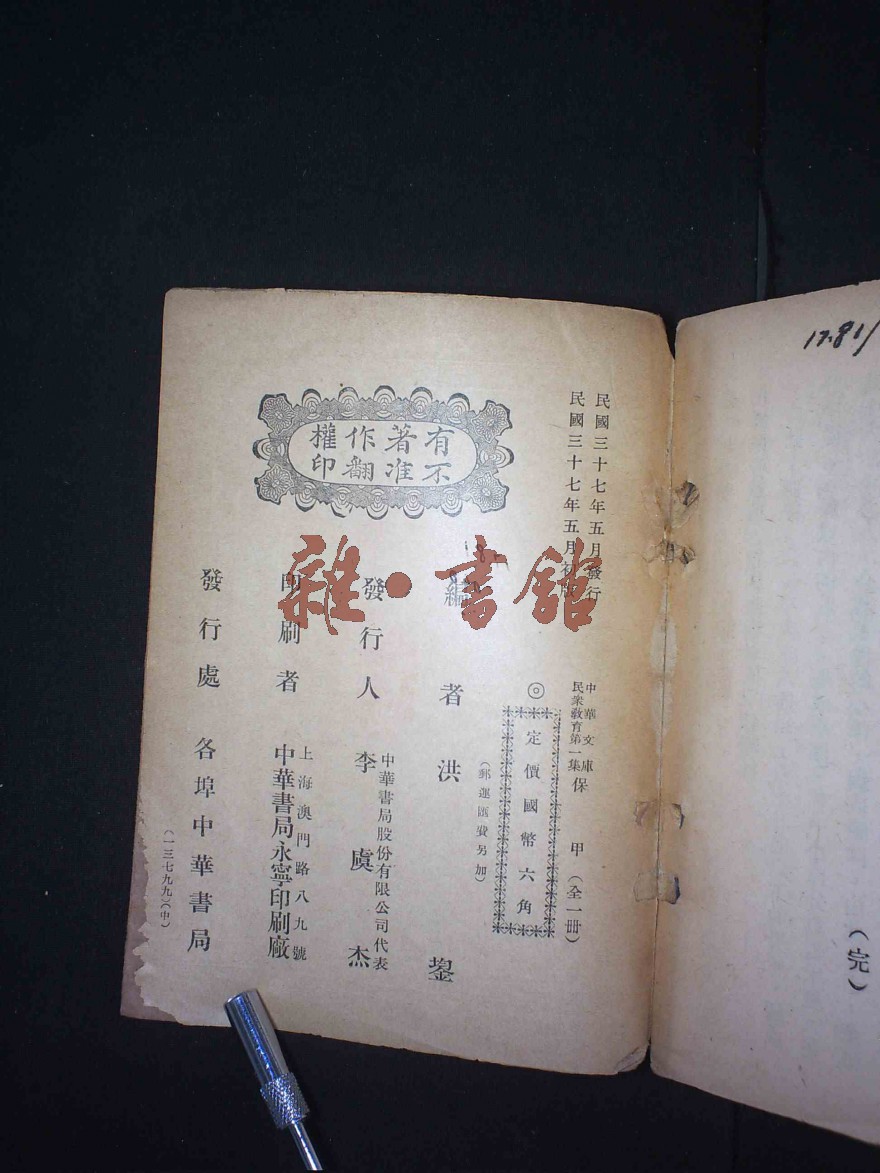 17.81
(完)
民國三十七年五月發行
民國三十七年五月初版
中華文庫
民衆教育第一集
保甲(全一冊)
◎定價國幣六角
(郵運匯費另加)
編者 洪鋆
發行人 李虞杰
中華書局股份有限公司代表
印刷者 中華書局永寧印刷廠
上海澳門路八九號
發行處 各埠中華書局
(一三七九九)(中)
有著作權
不准翻印
雜·書館